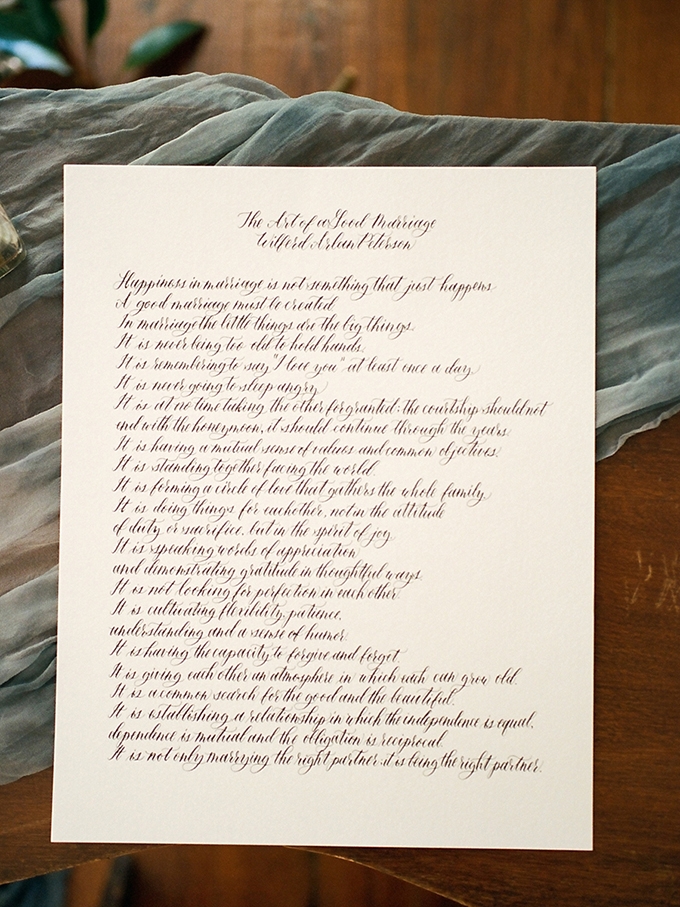 The Art of a Good Marriage
Wilferd Arlan Peterson
Happiness in marriage is not something that just happens.
A good marriage must be created.
In marriage the little things are the big things.
It is never being too old to hold hands.
It is remembering to say "I love you" at least once a day.
It is never going to sleep angry.
It is at no time taking the other for granted; the courtship should not
end with the honeymoon, it should continue through the years.
It is having a mutual sense of values and common objectives.
It is standing together facing the world.
It is forming a circle of love that gathers the whole family.
It is doing things for eachother, not in the attitude
of duty or sacrifice, but in the spirit of joy.
It is speaking words of appreciation
and demonstrating gratitude in thoughtful ways.
It is not looking for perfection in each other.
It is cultivating flexibility, patience,
understanding and a sense of humor.
It is having the capacity to forgive and forget.
It is giving each other an atmosphere in which each can grow old.
It is a common search for the good and the beautiful.
It is establishing a relationship in which the independence is equal,
dependence is mutual and the obligation is reciprocal.
It is not only marrying the right partner; it is being the right partner.